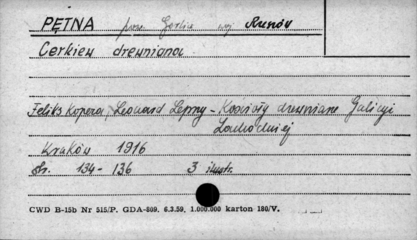 PĘTNA pow. Gorlice woj. Rzeszów
Cerkiew drewniana
Feliks Kopera, Leonard Lepszy - Kościoły drewniane Galicyi
Zachodniej
Kraków 1916
Str. 134-136 3 ilustr.
CWD B-15b Nr 515/P. GDA-809. 6.3.59. 1.000.000 karton 180/V.